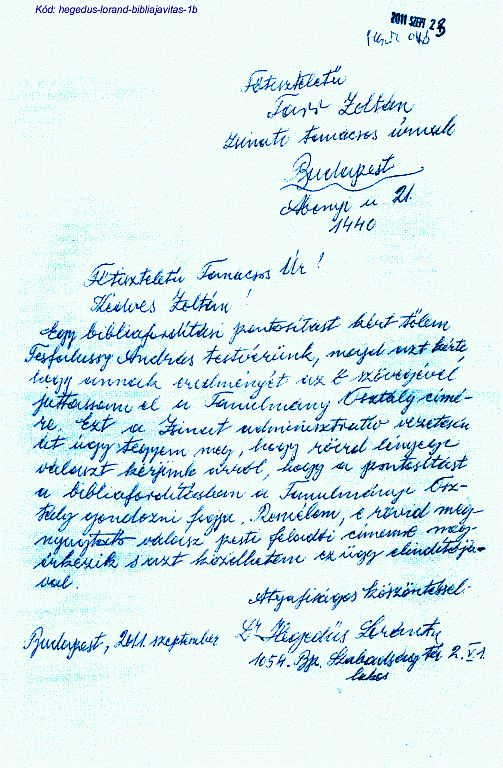 Kód: hegedus-lorand-bibliajavitas-1b
2011 SZEPT 28
Főtiszteletű
Tarr Zoltán
Zsinati tanácsos úrnak
Budapest
Abonyi u 21.
1440
Főtiszteletű Tanácsos Úr!
Kedves Zoltán!
Egy bibliafordítási pontosítást kért tőlem
András testvérünk, majd azt kérte,
hogy annak eredményét az ő szövegével
juttassam el a Tanulmányi Osztály címé-
re. Ezt a Zsinat adminisztratív vezetésén
át úgy tegyem meg, hogy rövid lényege
választ kérjünk arról, hogy a pontosítást
a bibliafordításban a Tanulmányi Osz-
tály gondozni fogja. Remélem, e rövid meg-
nyugtató válasz pesti feladói címemre meg-
érkezik s azt közölhetem ez ügy elindítójá-
val.
Atyafiságos köszöntéssel:
Budapest, 2011 szeptember Dr Hegedűs Loránt
1054. Bp. Szabadság tér 2. V.1.
lakos